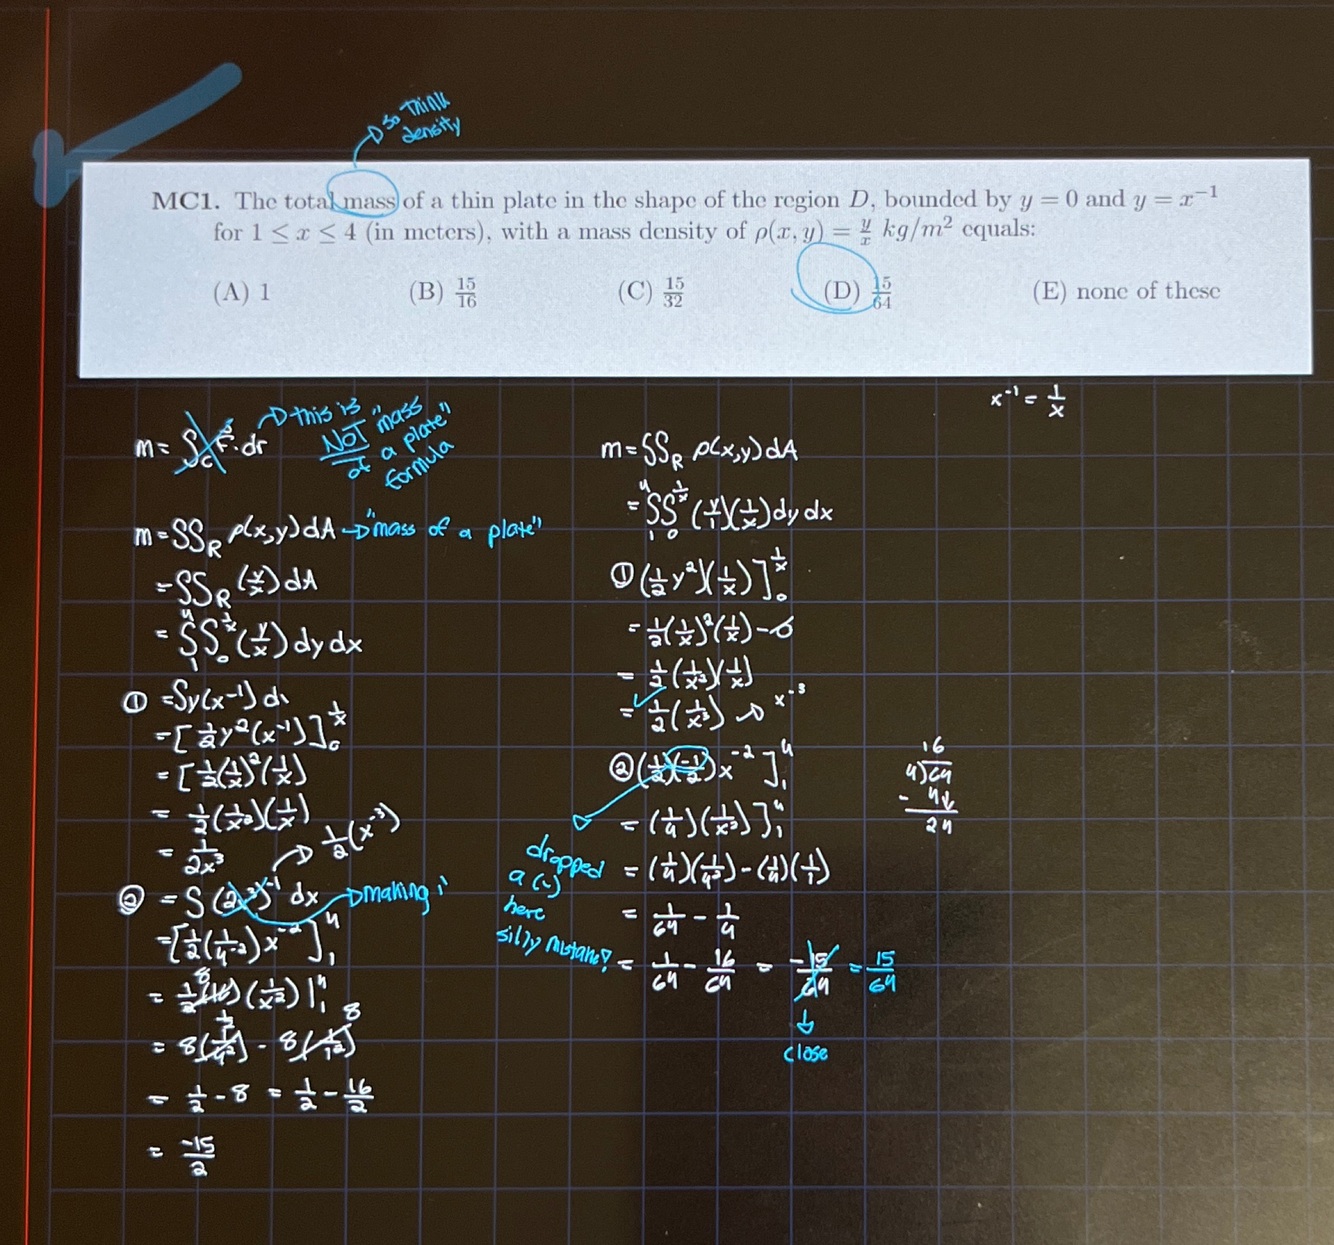 so think
density
MC1. The total mass of a thin plate in the shape of the region D, bounded by y = 0 and y = x⁻¹
for 1 ≤ x ≤ 4 (in meters), with a mass density of ρ(x, y) = y/x kg/m² equals:
(A) 1 (B) 15/16 (C) 15/32 (D) 15/64 (E) none of these
x⁻¹ = 1/x
m = ∫_C F · dr → this is
NOT "mass
of a plate"
formula
m = ∫∫_R ρ(x,y) dA → "mass of a plate"
= ∫∫_R (y/x) dA
= ∫₁⁴ ∫₀^(1/x) (y/x) dy dx
① = ∫ y(x⁻¹) d
= [½y²(x⁻¹)]₀^(1/x)
= [½(1/x)²(1/x)
= ½(1/x²)(1/x)
= 1/(2x³) → ½(x⁻³)
② = ∫ (2x³)⁻¹ dx → making
= [½(1/4⁻²) x⁻²]₁⁴
= ½(16)(1/x²)|₁⁴ 8
= 8(1/4²) - 8(1/1²) 8
= ½ - 8 = ½ - 16/2
= -15/2
m = ∫∫_R ρ(x,y) dA
= ∫₁⁴ ∫₀^(1/x) (y/1)(1/x) dy dx
① (½y²)(1/x)]₀^(1/x)
= ½(1/x)²(1/x) - 0
= ½(1/x²)(1/x)
= ½(1/x³) → x⁻³
② (½)(-1/2) x⁻²]₁⁴
= (¼)(1/x²)]₁⁴
= (¼)(1/4²) - (¼)(1/1)
= 1/64 - 1/4
= 1/64 - 16/64 = -15/64 = 15/64
close
dropped
a (-)
here
silly mistake!
16
4)64
- 4↓
24